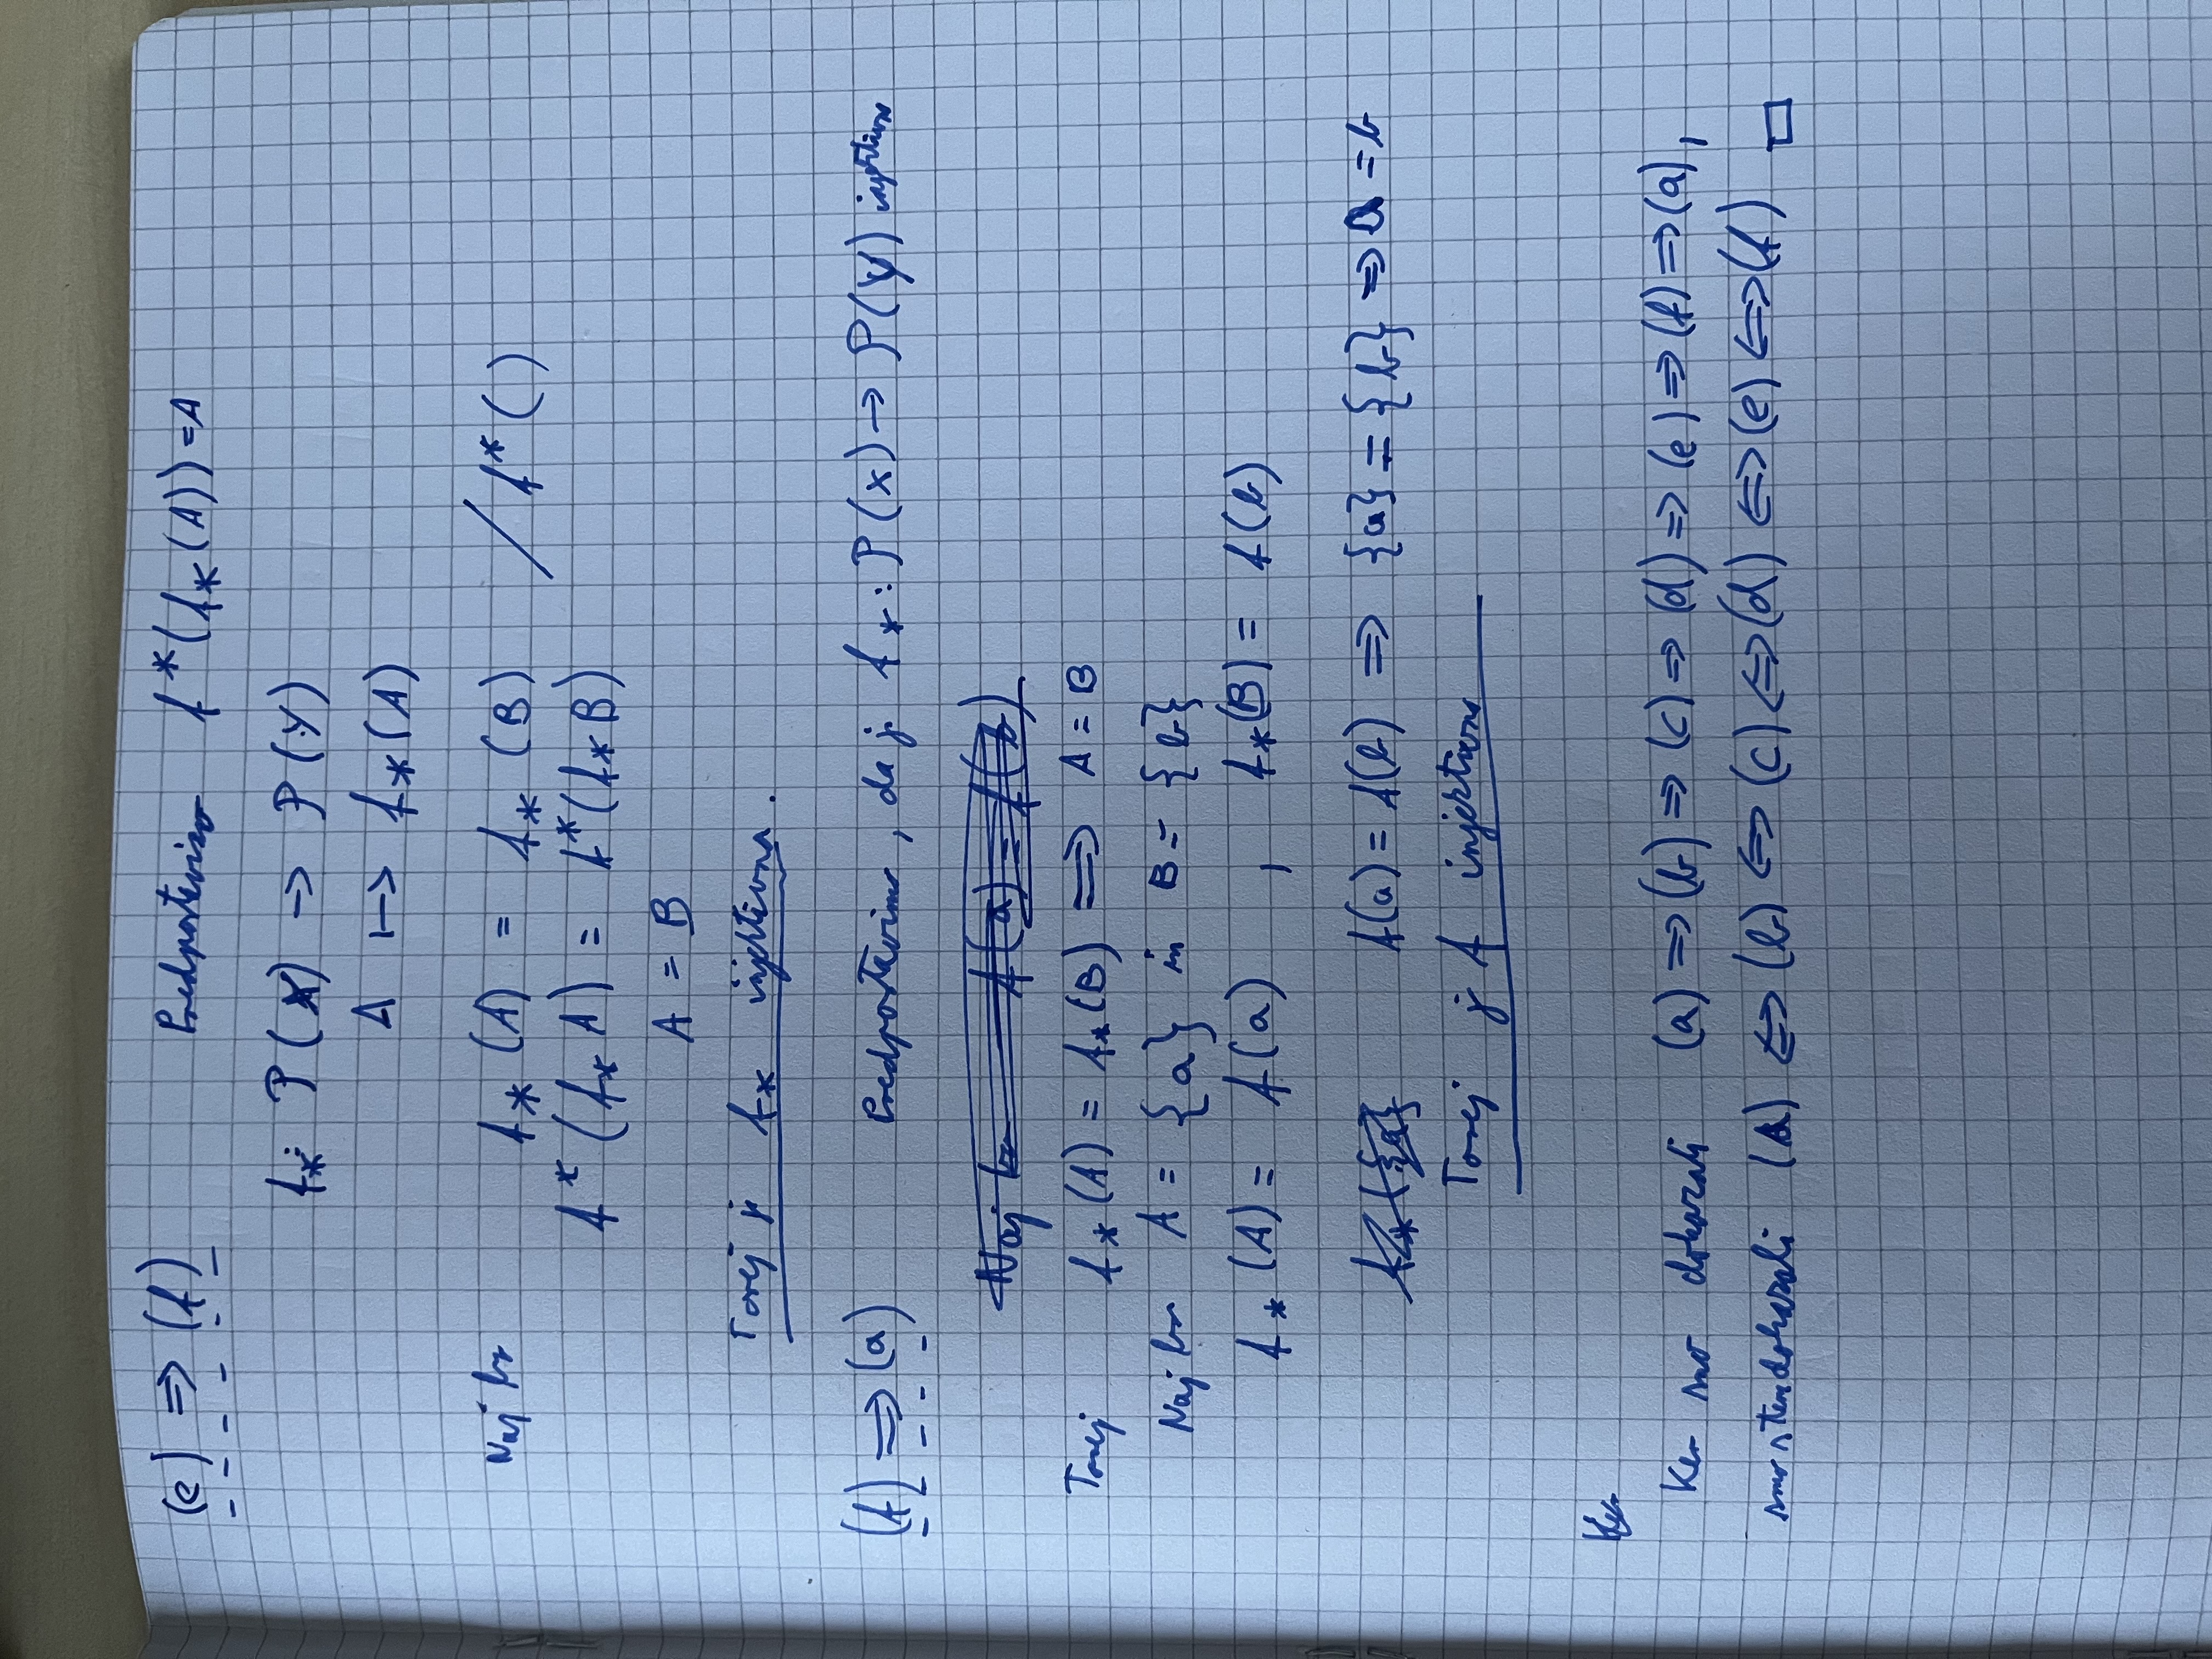 (e) ⇒ (f) Predpostavimo f*(f_*(A)) = A
f_*: P(X) → P(Y)
A ↦ f_*(A)
Naj bo f_*(A) = f_*(B) / f*( )
f*(f_* A) = f*(f_* B)
A = B
Torej je f_* injektivna.
(f) ⇒ (a) Predpostavimo, da je f_*: P(X) → P(Y) injektivna
Naj bo f(a) = f(b)
Torej f_*(A) = f_*(B) ⇒ A = B
Naj bo A = {a} in B = {b}
f_*(A) = f(a) , f_*(B) = f(b)
f_*({a} f(a) = f(b) ⇒ {a} = {b} ⇒ a = b
Torej je f injektivna
Ker
Ker smo dokazali (a) ⇒ (b) ⇒ (c) ⇒ (d) ⇒ (e) ⇒ (f) ⇒ (a),
smo s tem dokazali (a) ⇔ (b) ⇔ (c) ⇔ (d) ⇔ (e) ⇔ (f) □